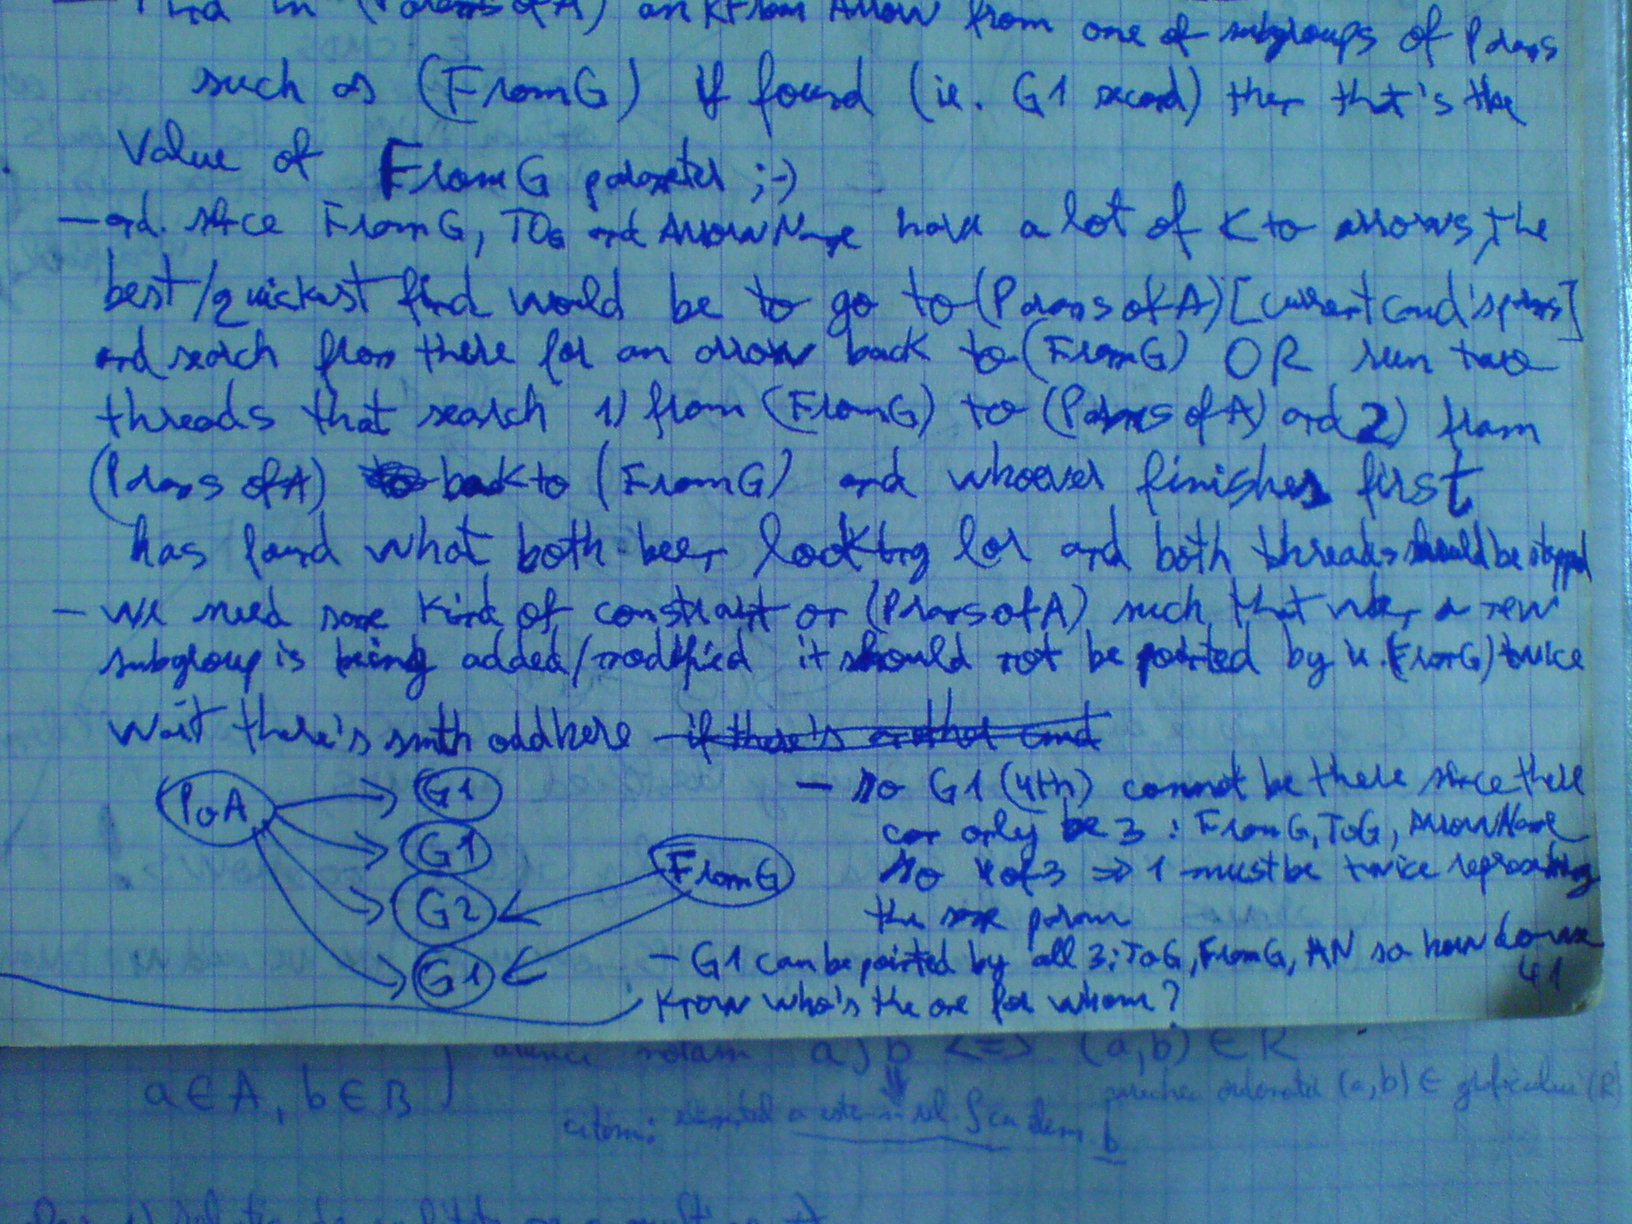 - find in (Params of A) an KFrom Arrow from one of subgroups of Params
such as (FromG) if found (ie. G1 second) then that's the
Value of FromG parameter ;-)
- and since FromG, TOG and ArrowName have a lot of K to arrows, the
best/quickest find would be to go to (Params of A) [current cmd's params]
and search from there for an arrow back to (FromG) OR run two
threads that search 1) from (FromG) to (Params of A) and 2) from
(Params of A) back to (FromG) and whoever finishes first
has found what both been looking for and both threads should be stopped
- we need some kind of constraint on (Params of A) such that when a new
subgroup is being added/modified it should not be pointed by ie. (FromG) twice
wait there's smth odd here if there's another cmd
PoA
G1
G1
G2
G1
FromG
- so G1 (4th) cannot be there since there
can only be 3 : FromG, ToG, ArrowName
so 4 of 3 => 1 must be twice representing
the same param
- G1 can be pointed by all 3: ToG, FromG, AN so how do we
know who's the one for whom?
41
a ∈ A, b ∈ B
notam a ρ b <=> (a,b) ∈ R
citim: elementul a este in rel. ρ cu elem b
perechea ordonata (a,b) ∈ graficului (R)